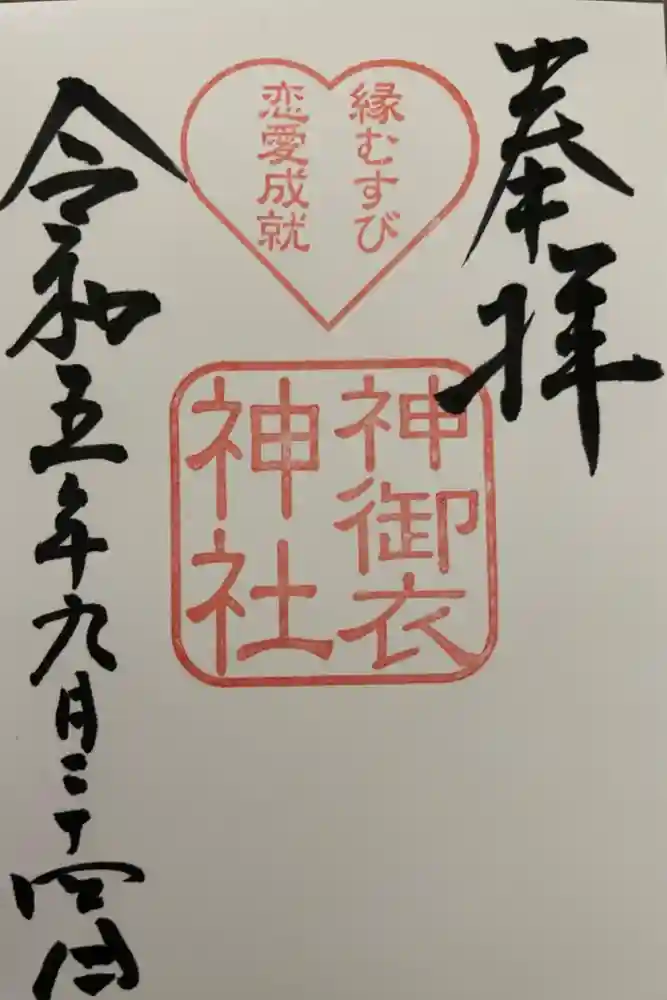 奉拝
縁むすび
恋愛成就
神御衣
神社
令和五年九月二十四日